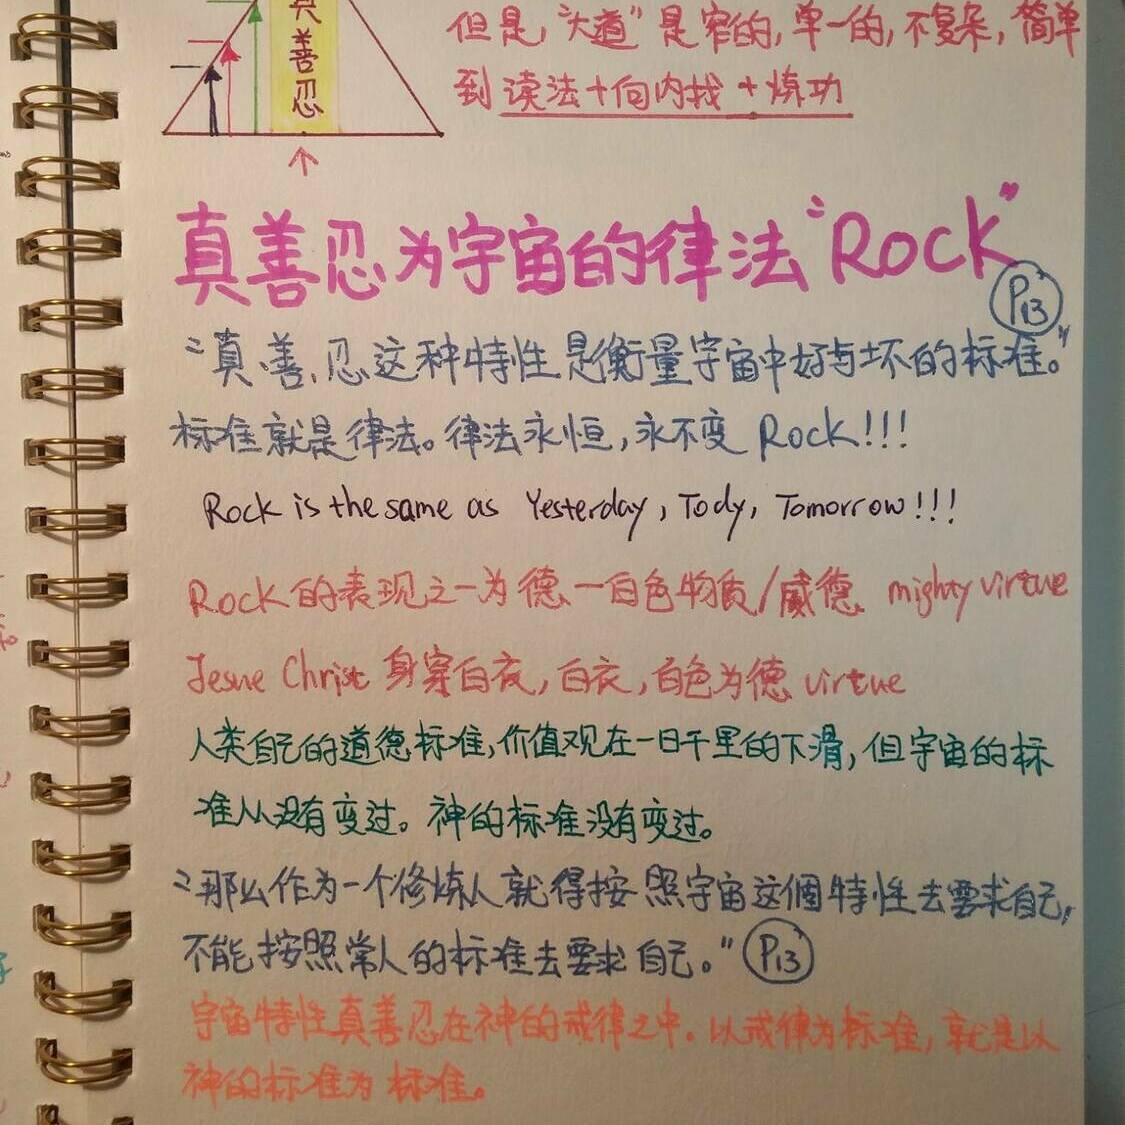 真善忍
但是，"大道"是窄的，单一的，不复杂，简单
到读法+向内找+炼功
真善忍为宇宙的律法"Rock"
P13
"真、善、忍这种特性是衡量宇宙中好与坏的标准。"
标准就是律法。律法永恒，永不变 Rock!!!
Rock is the same as Yesterday, Tody, Tomorrow!!!
Rock的表现之一为德—白色物质/威德 mighty virtue
Jesue Christ 身穿白衣，白衣，白色为德 virtue
人类自己的道德标准，价值观在一日千里的下滑，但宇宙的标
准从没有变过。神的标准没有变过。
"那么作为一个修炼人就得按照宇宙这個特性去要求自己，
不能按照常人的标准去要求自己。" P13
宇宙特性真善忍在神的戒律之中。以戒律为标准，就是以
神的标准为标准。